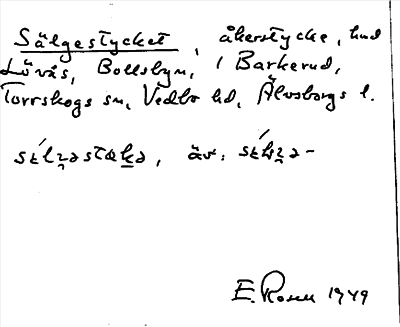 Sälgestycket, åkerstycke, hmd
Lövås, Bollsbyn, 1 Barkerud,
Torrskogs sn, Vedbo hd, Älvsborgs l.
äv.
E. Rosell 1949